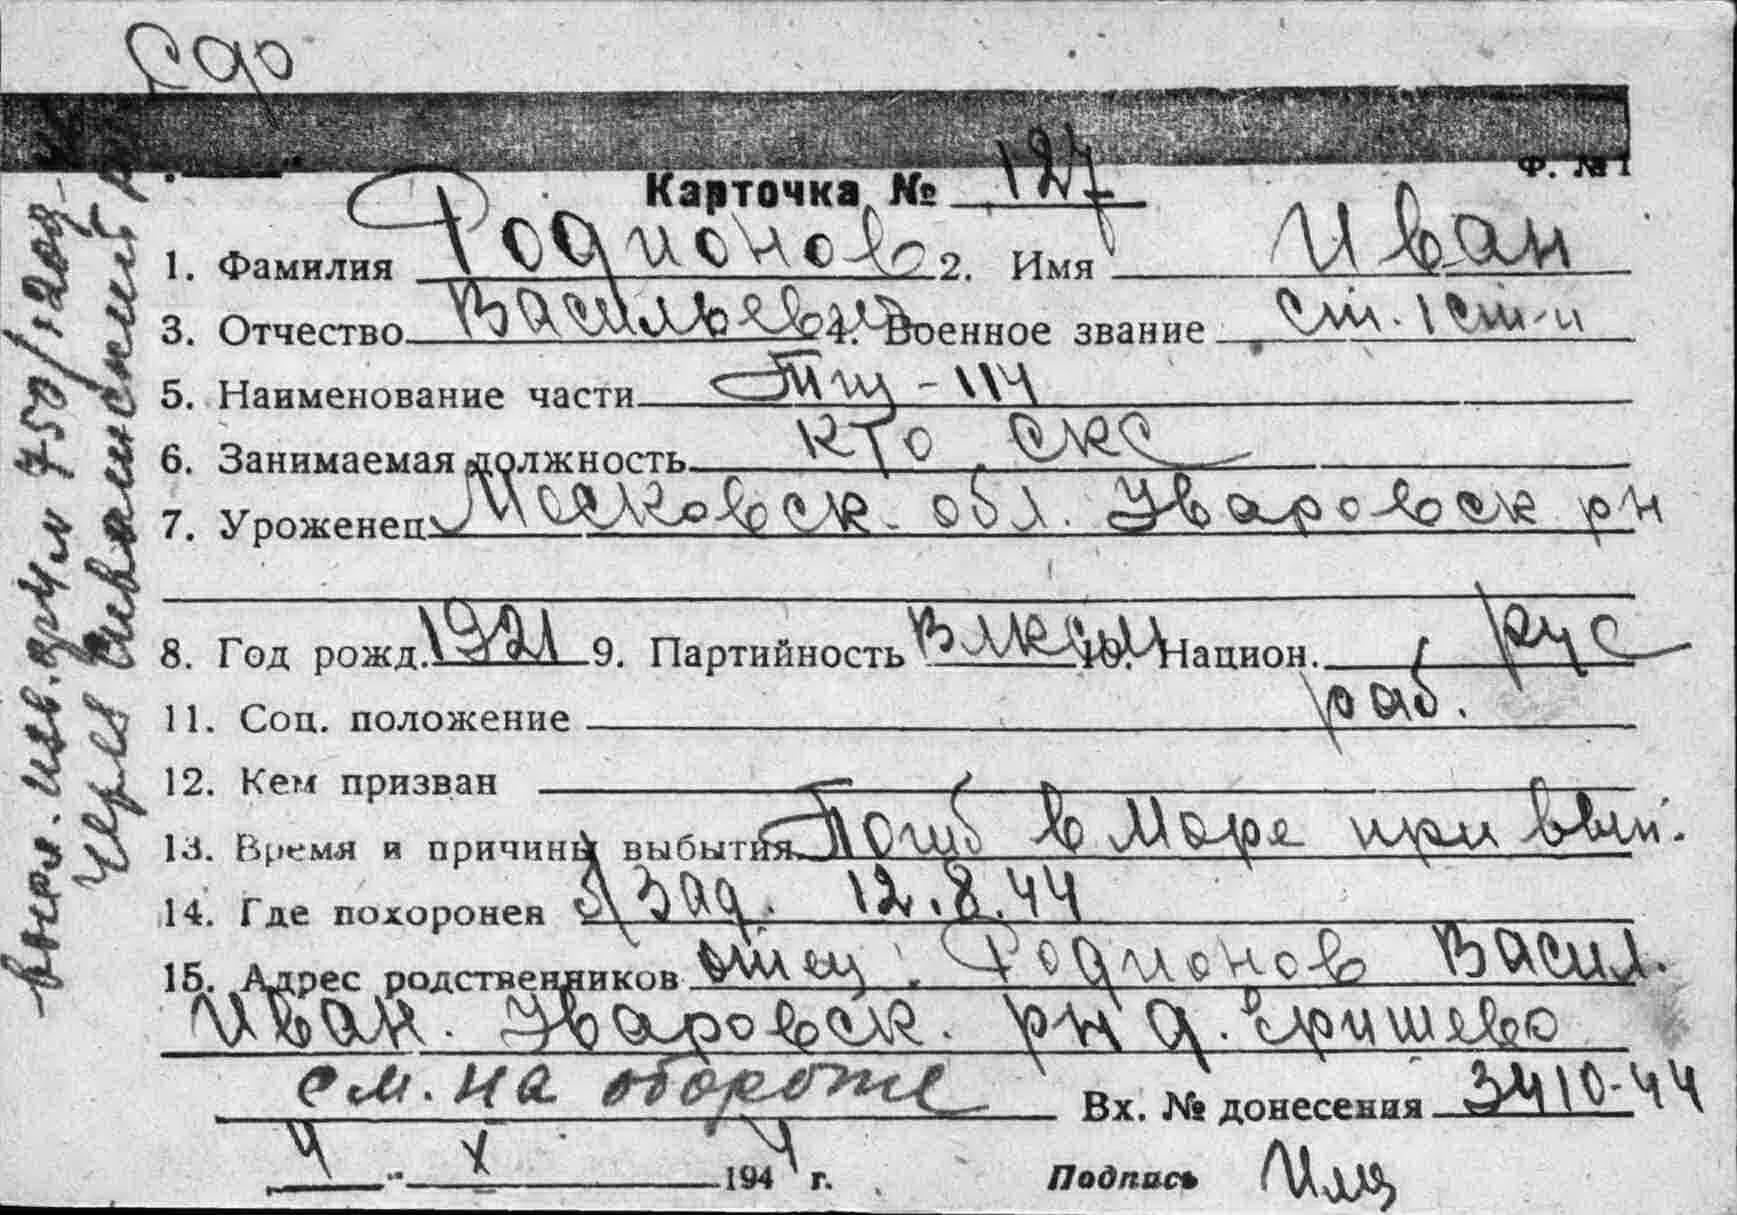 Ф. № 1
Карточка № 127
1. Фамилия Родионов 2. Имя Иван
3. Отчество Васильевич 4. Военное звание ст. 1 ст-и
5. Наименование части Тщ-114
6. Занимаемая должность к-то СКС
7. Уроженец Московск. обл. Уваровск рн
8. Год рожд. 1921 9. Партийность ВЛКСМ 10. Национ. рус
11. Соц. положение раб.
12. Кем призван
13. Время и причины выбытия Погиб в море при вып.
14. Где похоронен б/зад. 12.8.44
15. Адрес родственников отец: Родионов Васил.
Иван. Уваровск. рн д. Еришево
см. на обороте Вх. № донесения 3410-44
4 " X 1944 г. Подпись
через